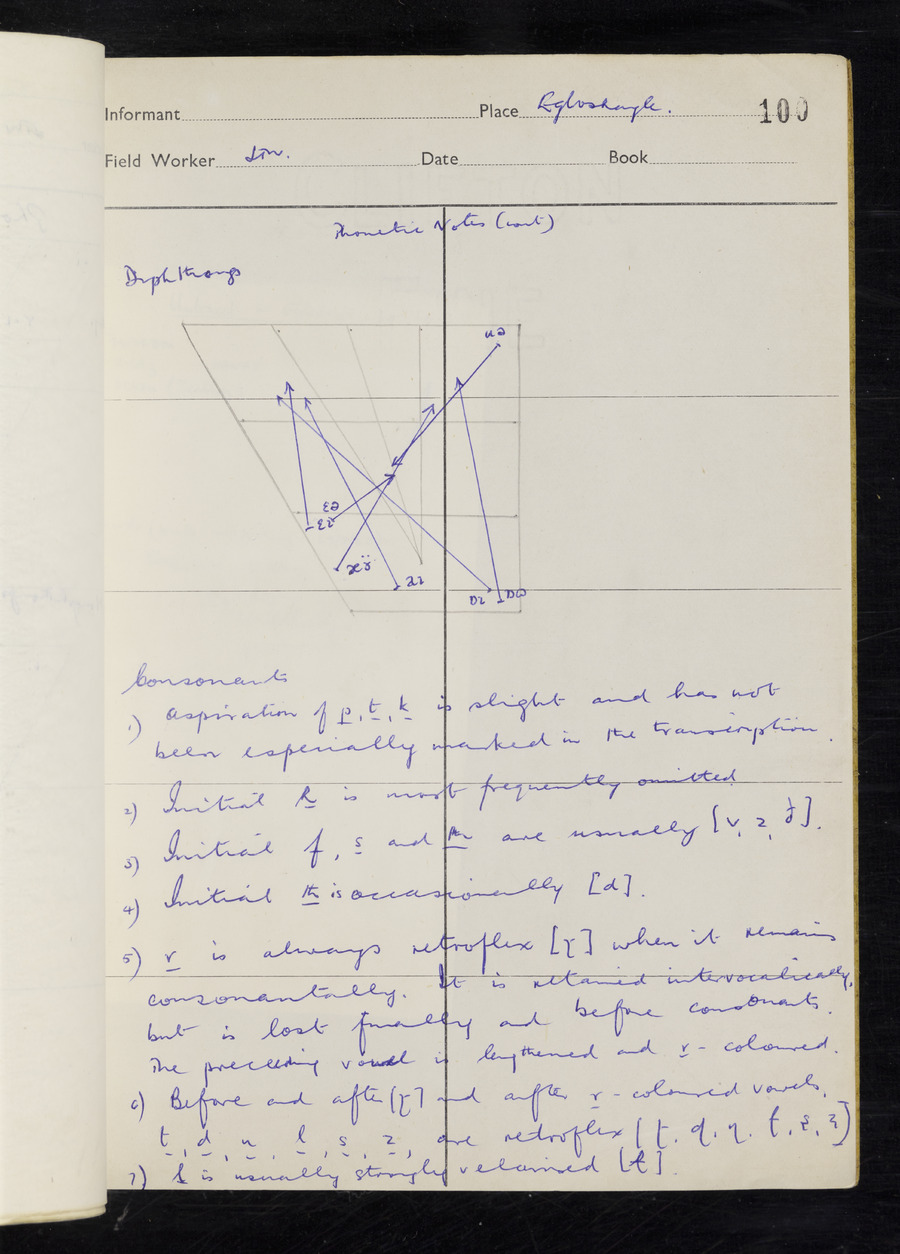 Informant Place Egloshayle. 100
Field Worker Date Book
Phonetic Notes (cont)
Diphthongs
uə
ɛə
ɛɪ
æɪ
ɒɪ ɒʊ
Consonants
1) Aspiration of p, t, k is slight and has not
been especially marked in the transcription.
2) Initial h is most frequently omitted
3) Initial f, s and th are usually [v, z, ð].
4) Initial th is occasionally [d].
5) r is always retroflex [ɽ] when it remains
consonantally. It is retained intervocalically,
but is lost finally and before consonants.
The preceeding vowel is lengthened and r-coloured.
6) Before and after [ɽ] and after r-coloured vowels,
t, d, n, l, s, z, are retroflex [ʈ, ɖ, ɳ, ɭ, ʂ, ʐ]
7) l is usually strongly velarised [ɫ].